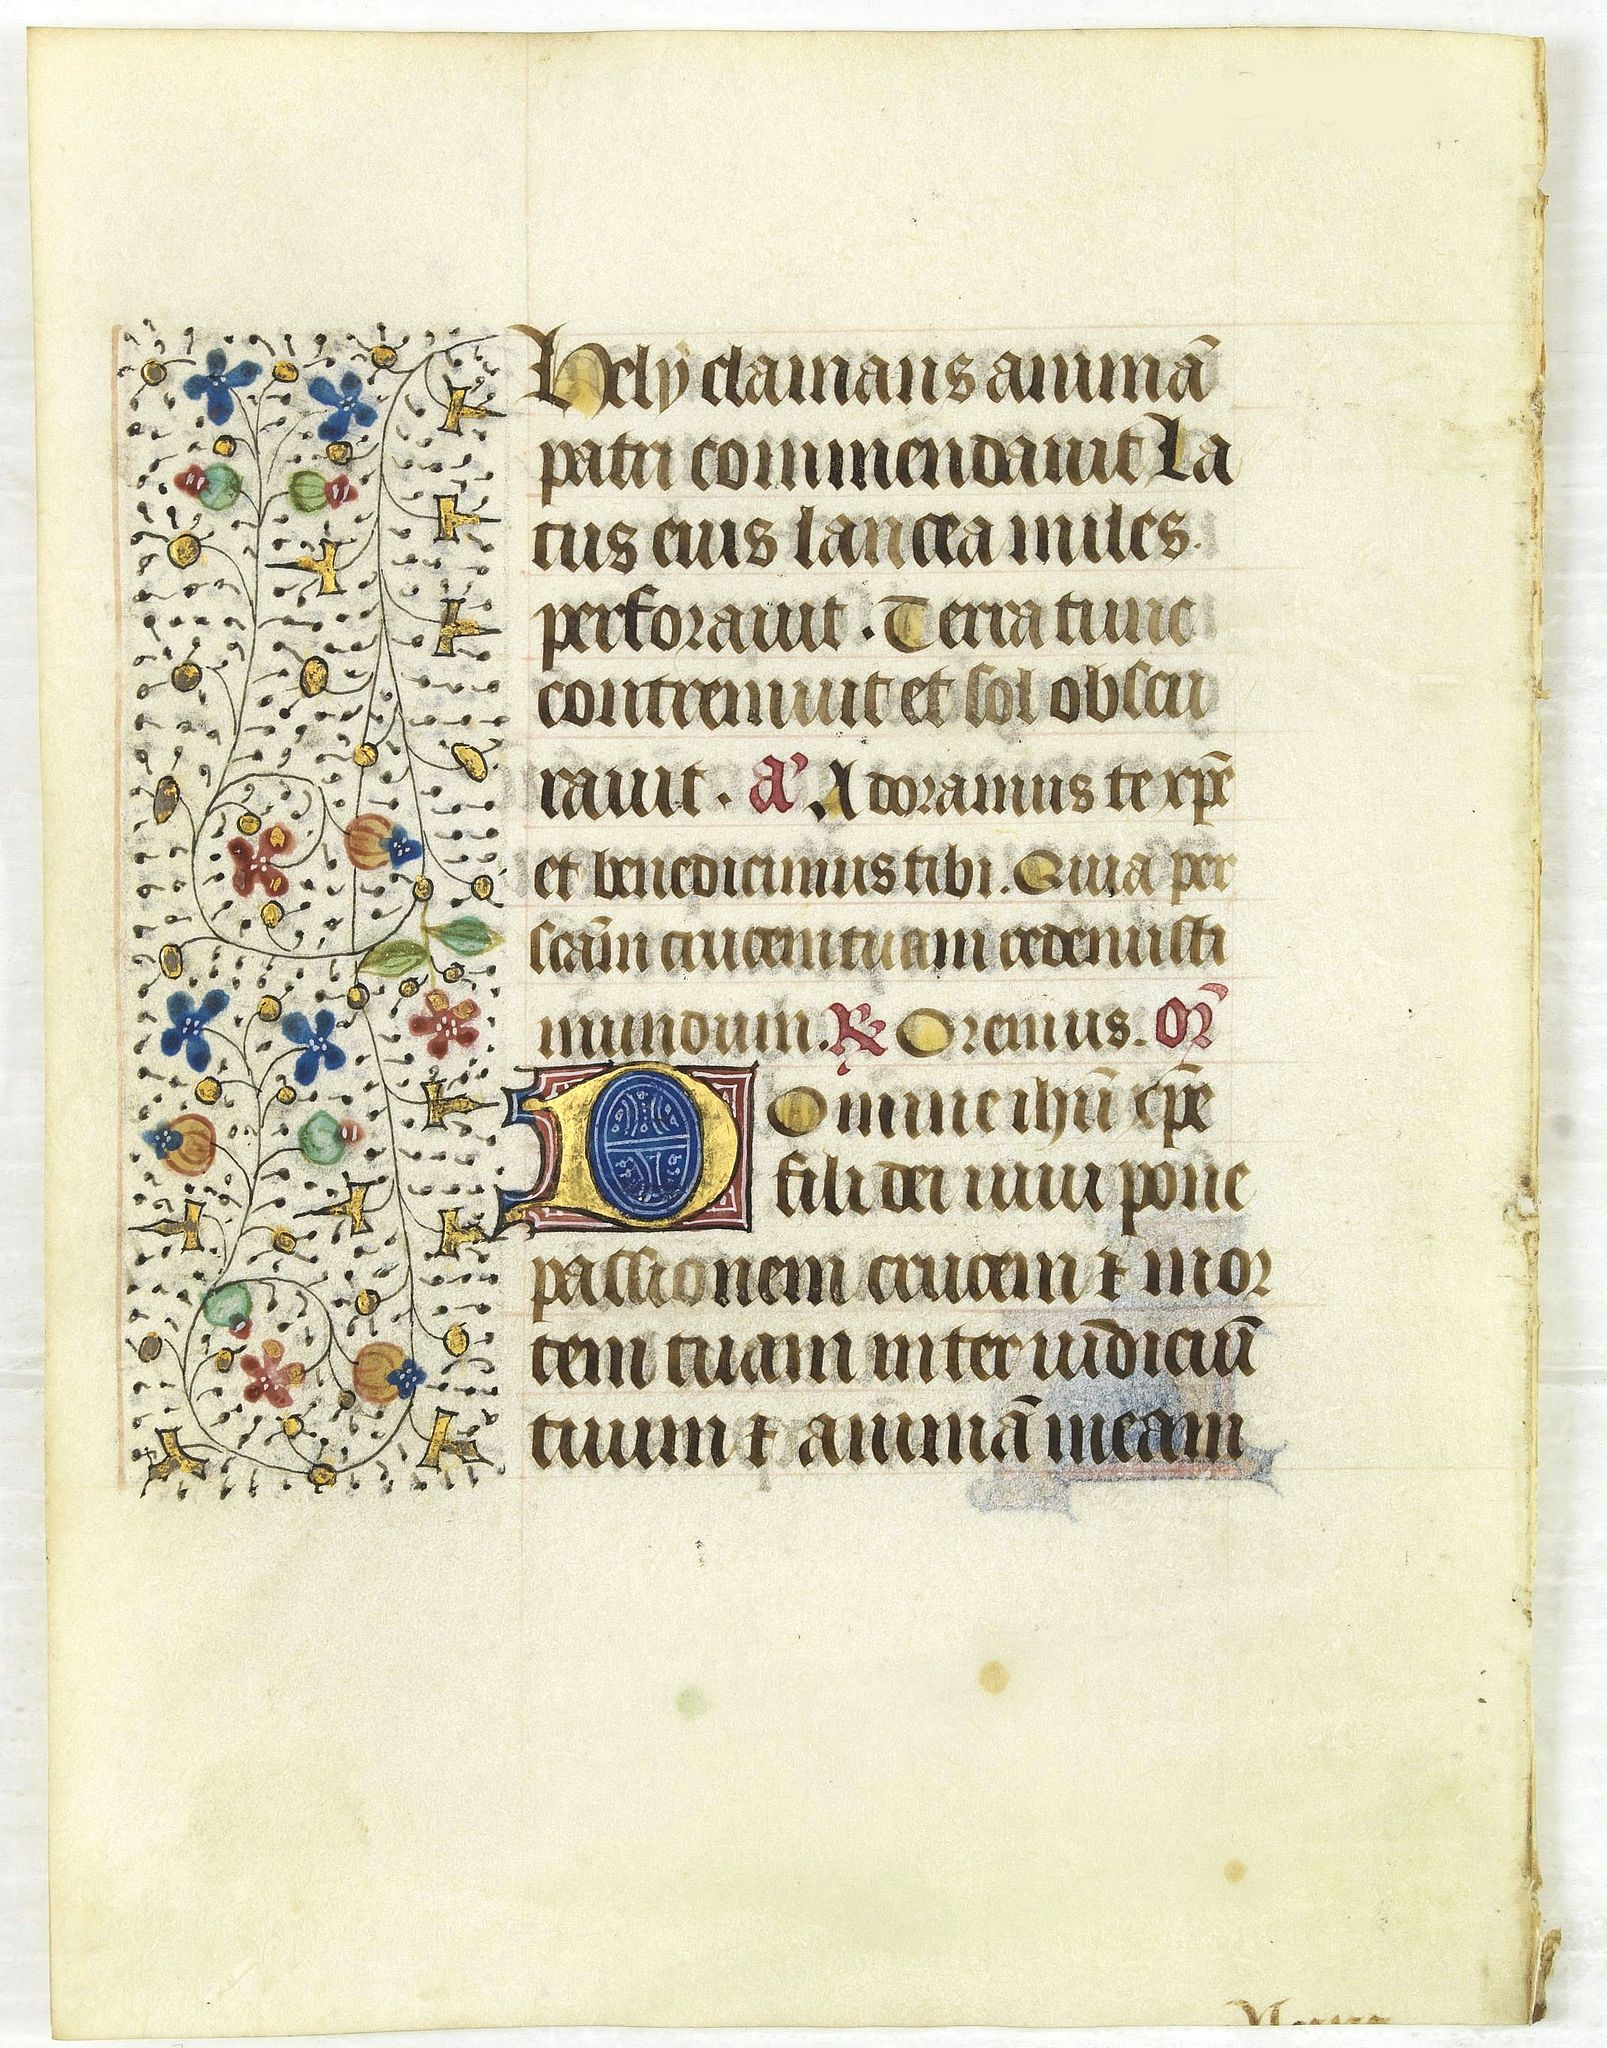 Hely clamans animā
patri commendauit La
tus eius lancea miles.
perforauit. Terra tunc
contremuit et sol obscu
rauit. a' Adoramus te xp̄e
et benedicimus tibi. Quia per
scām crucem tuam redemisti
mundum. ℟ Oremus. or̄
Domine ihū xp̄e
fili dei uiui pone
passionem crucem ⁊ mor
tem tuam inter iudiciū
tuum ⁊ animā meam